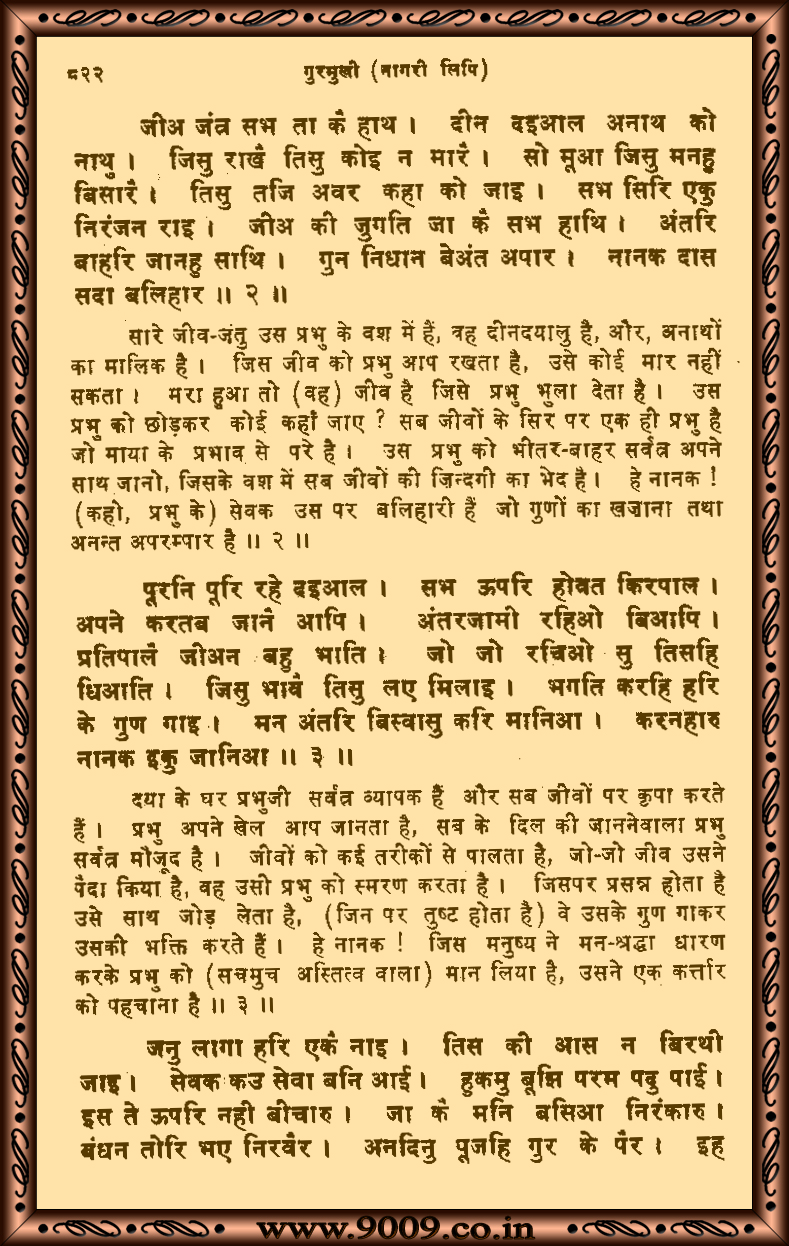 ८२२ गुरमुखी (नागरी लिपि)
जीअ जंत्र सभ ता कै हाथ । दीन दइआल अनाथ को
नाथु । जिसु राखै तिसु कोइ न मारै । सो मूआ जिसु मनहु
बिसारै । तिसु तजि अवर कहा को जाइ । सभ सिरि एकु
निरंजन राइ । जीअ की जुगति जा कै सभ हाथि । अंतरि
बाहरि जानहु साथि । गुन निधान बेअंत अपार । नानक दास
सदा बलिहार ॥ २ ॥
सारे जीव-जंतु उस प्रभु के वश में हैं, वह दीनदयालु है, और, अनाथों
का मालिक है । जिस जीव को प्रभु आप रखता है, उसे कोई मार नहीं
सकता । मरा हुआ तो (वह) जीव है जिसे प्रभु भुला देता है । उस
प्रभु को छोड़कर कोई कहाँ जाए ? सब जीवों के सिर पर एक ही प्रभु है
जो माया के प्रभाव से परे है । उस प्रभु को भीतर-बाहर सर्वत्र अपने
साथ जानो, जिसके वश में सब जीवों की ज़िन्दगी का भेद है । हे नानक !
(कहो, प्रभु के) सेवक उस पर बलिहारी हैं जो गुणों का खज़ाना तथा
अनन्त अपरम्पार है ॥ २ ॥
पूरनि पूरि रहे दइआल । सभ ऊपरि होवत किरपाल ।
अपने करतब जानै आपि । अंतरजामी रहिओ बिआपि ।
प्रतिपालै जीअन बहु भाति । जो जो रचिओ सु तिसहि
धिआति । जिसु भावै तिसु लए मिलाइ । भगति करहि हरि
के गुण गाइ । मन अंतरि बिस्वासु करि मानिआ । करनहारु
नानक इकु जानिआ ॥ ३ ॥
दया के घर प्रभुजी सर्वत्र व्यापक हैं और सब जीवों पर कृपा करते
हैं । प्रभु अपने खेल आप जानता है, सब के दिल की जाननेवाला प्रभु
सर्वत्र मौजूद है । जीवों को कई तरीकों से पालता है, जो-जो जीव उसने
पैदा किया है, वह उसी प्रभु को स्मरण करता है । जिसपर प्रसन्न होता है
उसे साथ जोड़ लेता है, (जिन पर तुष्ट होता है) वे उसके गुण गाकर
उसकी भक्ति करते हैं । हे नानक ! जिस मनुष्य ने मन-श्रद्धा धारण
करके प्रभु को (सचमुच अस्तित्व वाला) मान लिया है, उसने एक कर्त्तार
को पहचाना है ॥ ३ ॥
जनु लागा हरि एकै नाइ । तिस की आस न बिरथी
जाइ । सेवक कउ सेवा बनि आई । हुकमु बूझि परम पदु पाई ।
इस ते ऊपरि नही बीचारु । जा कै मनि बसिआ निरंकारु ।
बंधन तोरि भए निरवैर । अनदिनु पूजहि गुर के पैर । इह
www.9009.co.in